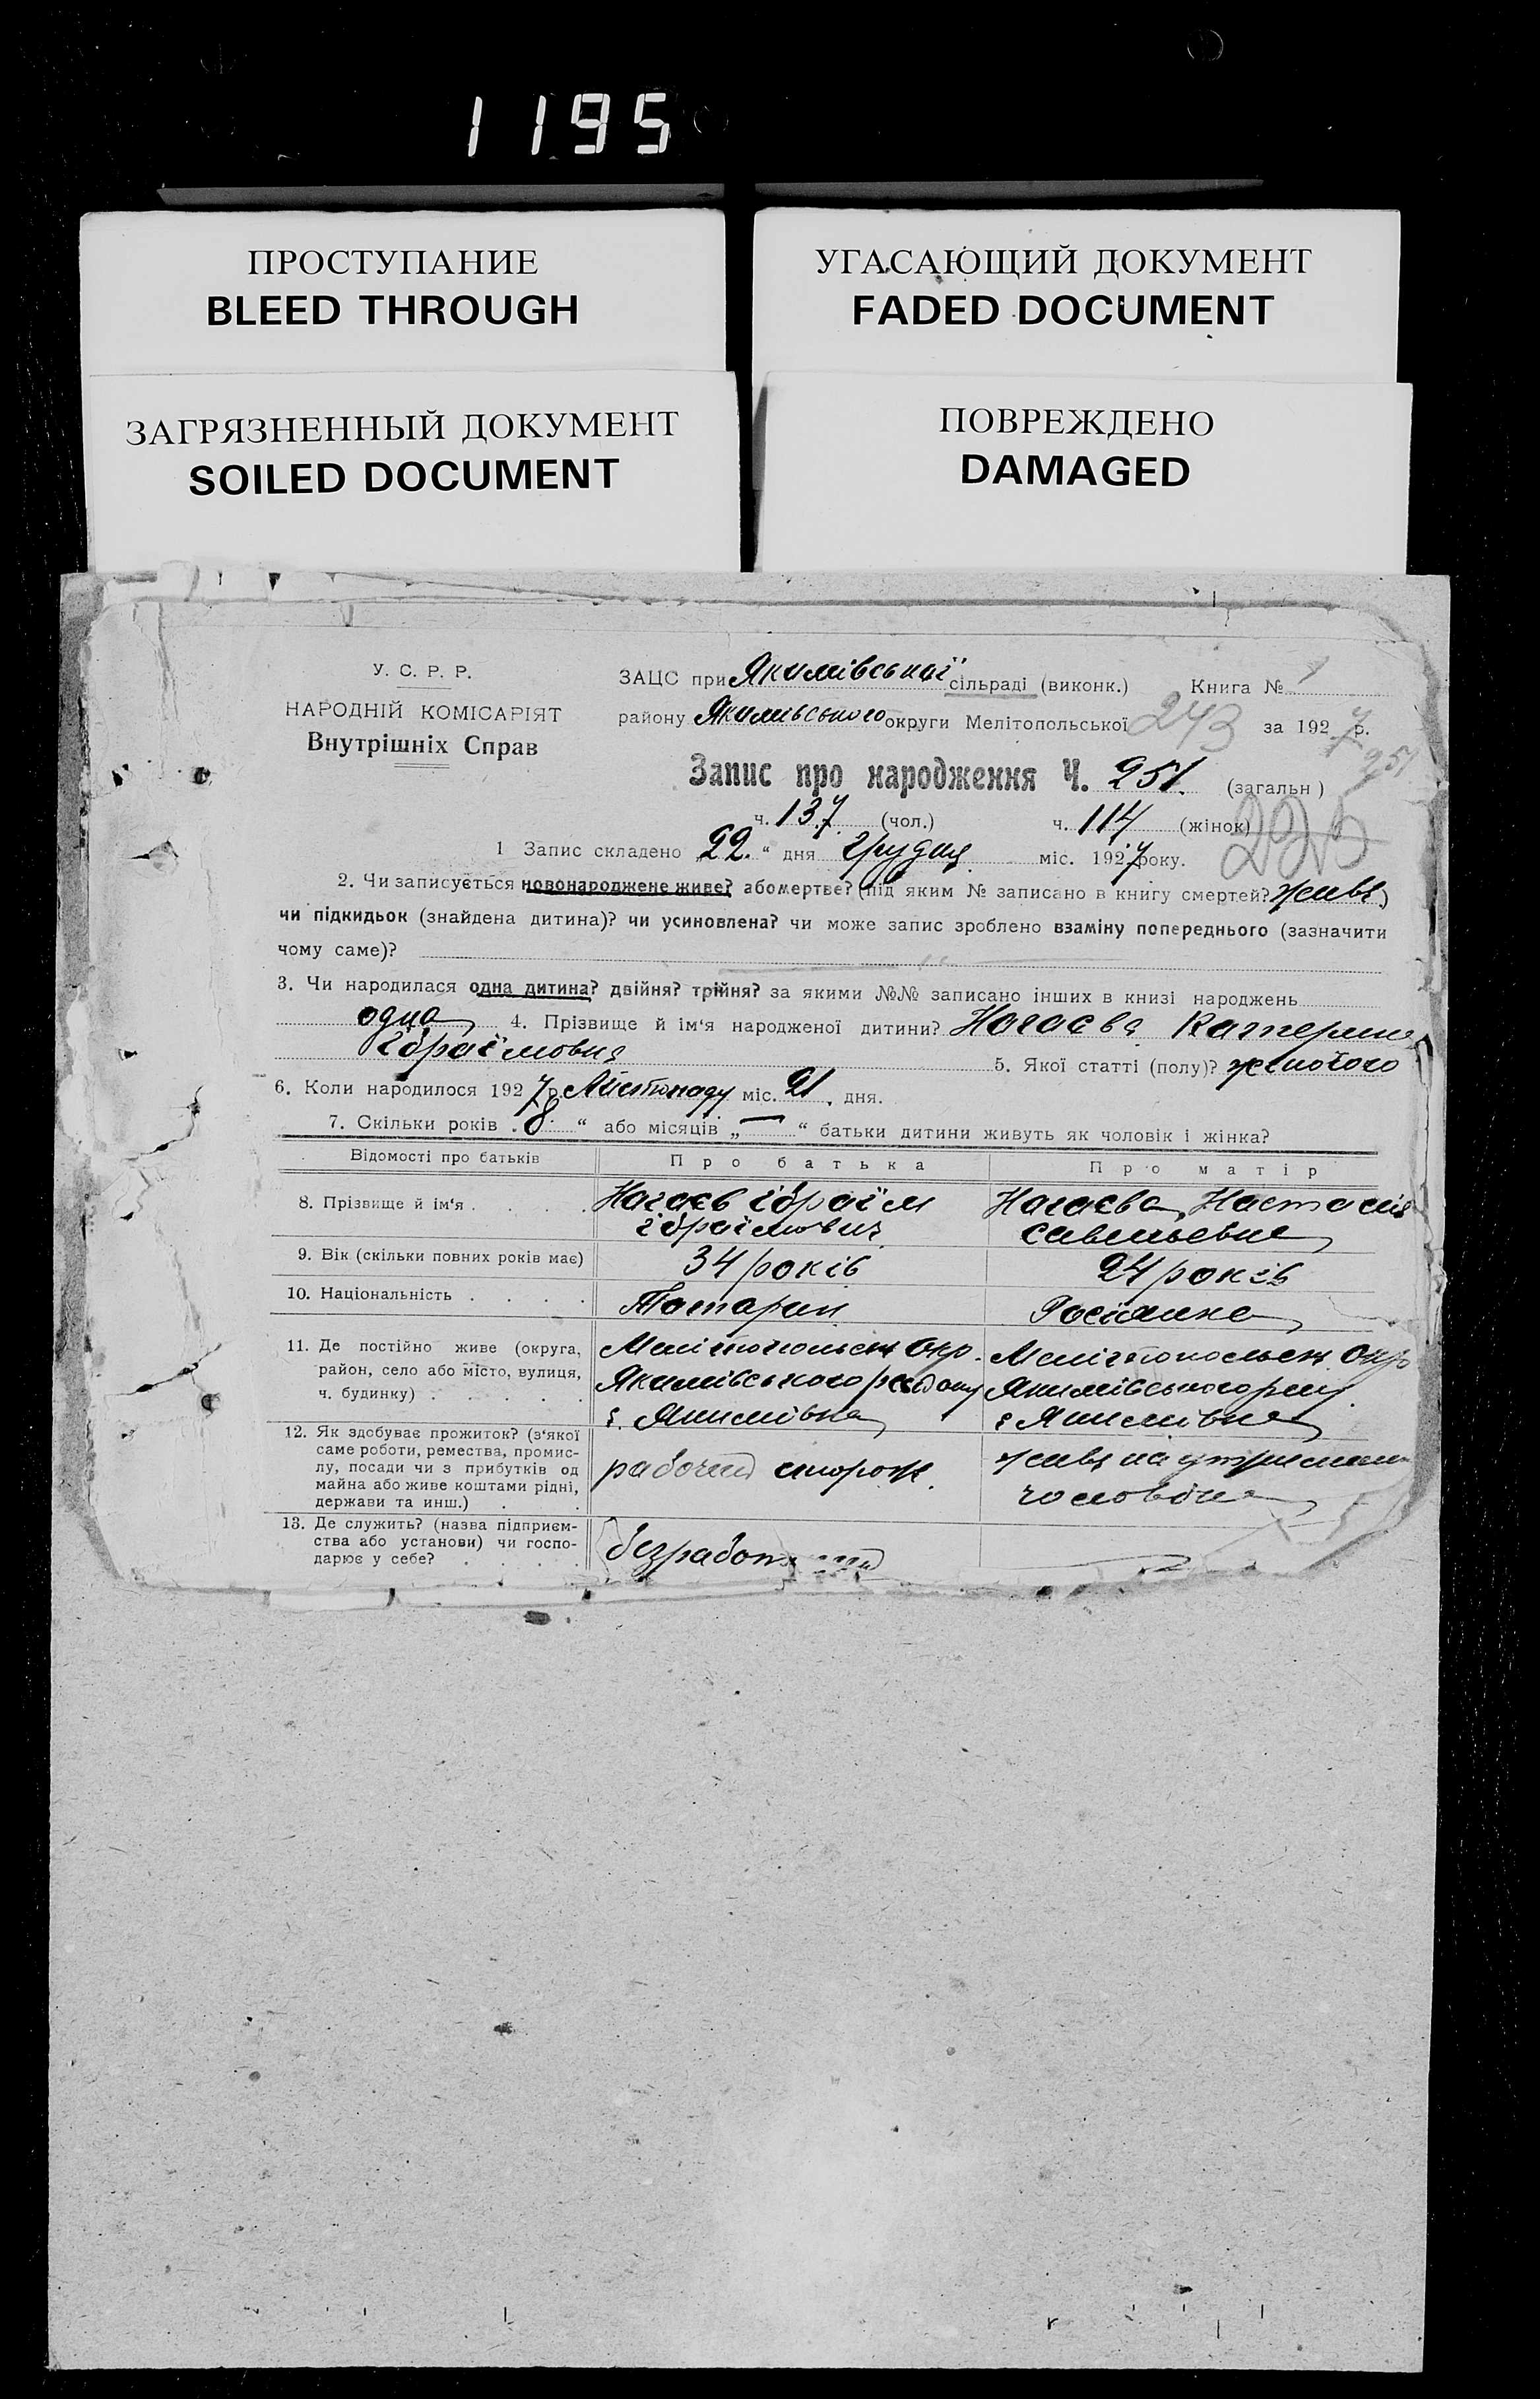 1195
ПРОСТУПАНИЕ
BLEED THROUGH
УГАСАЮЩИЙ ДОКУМЕНТ
FADED DOCUMENT
ЗАГРЯЗНЕННЫЙ ДОКУМЕНТ
SOILED DOCUMENT
ПОВРЕЖДЕНО
DAMAGED
У. С. Р. Р.
НАРОДНІЙ КОМІСАРІЯТ
Внутрішніх Справ
ЗАЦС при Якимівської сільраді (виконк.) Книга № 1
району Якимівського округи Мелітопольської 243 за 1927 р.
251
Запис про народження Ч. 251. (загальн)
ч. 137 (чол.) ч. 114 (жінок)
1 Запис складено „22.“ дня грудня міс. 1927 року.
2. Чи записується новонароджене живе? або мертве? (під яким № записано в книгу смертей? живе)
чи підкидьок (знайдена дитина)? чи усиновлена? чи може запис зроблено взаміну попереднього (зазначити
чому саме)?
3. Чи народилася одна дитина? двійня? трійня? за якими №№ записано інших в книзі народжень
одна 4. Прізвище й ім'я народженої дитини? Нагаєва Катерина
Ібраїмовна 5. Якої статті (полу)? жіночого
6. Коли народилося 1927 р. Листопаду міс. 21. дня.
7. Скільки років „8“ або місяців „—“ батьки дитини живуть як чоловік і жінка?
Відомості про батьків Про батька Про матір
8. Прізвище й ім'я . . . . Нагаєв Ібраїм Нагаєва Настасія
Ібраїмович Савельевна
9. Вік (скільки повних років має) 34 років 24 років
10. Національність . . . . Татарин Росіянка
11. Де постійно живе (округа, Мелітопольськ Окр. Мелітопольськ Окр
район, село або місто, вулиця, Якимівського району Якимівського рну
ч. будинку) . . . . с. Якимівка с Якимівка
12. Як здобуває прожиток? (з'якої
саме роботи, ремества, промис-
лу, посади чи з прибутків од
майна або живе коштами рідні,
держави та инш.) . .
рабочий сторож. живе на утриманн
чоловіка
13. Де служить? (назва підприєм-
ства або установи) чи госпо-
дарює у себе? . . . .